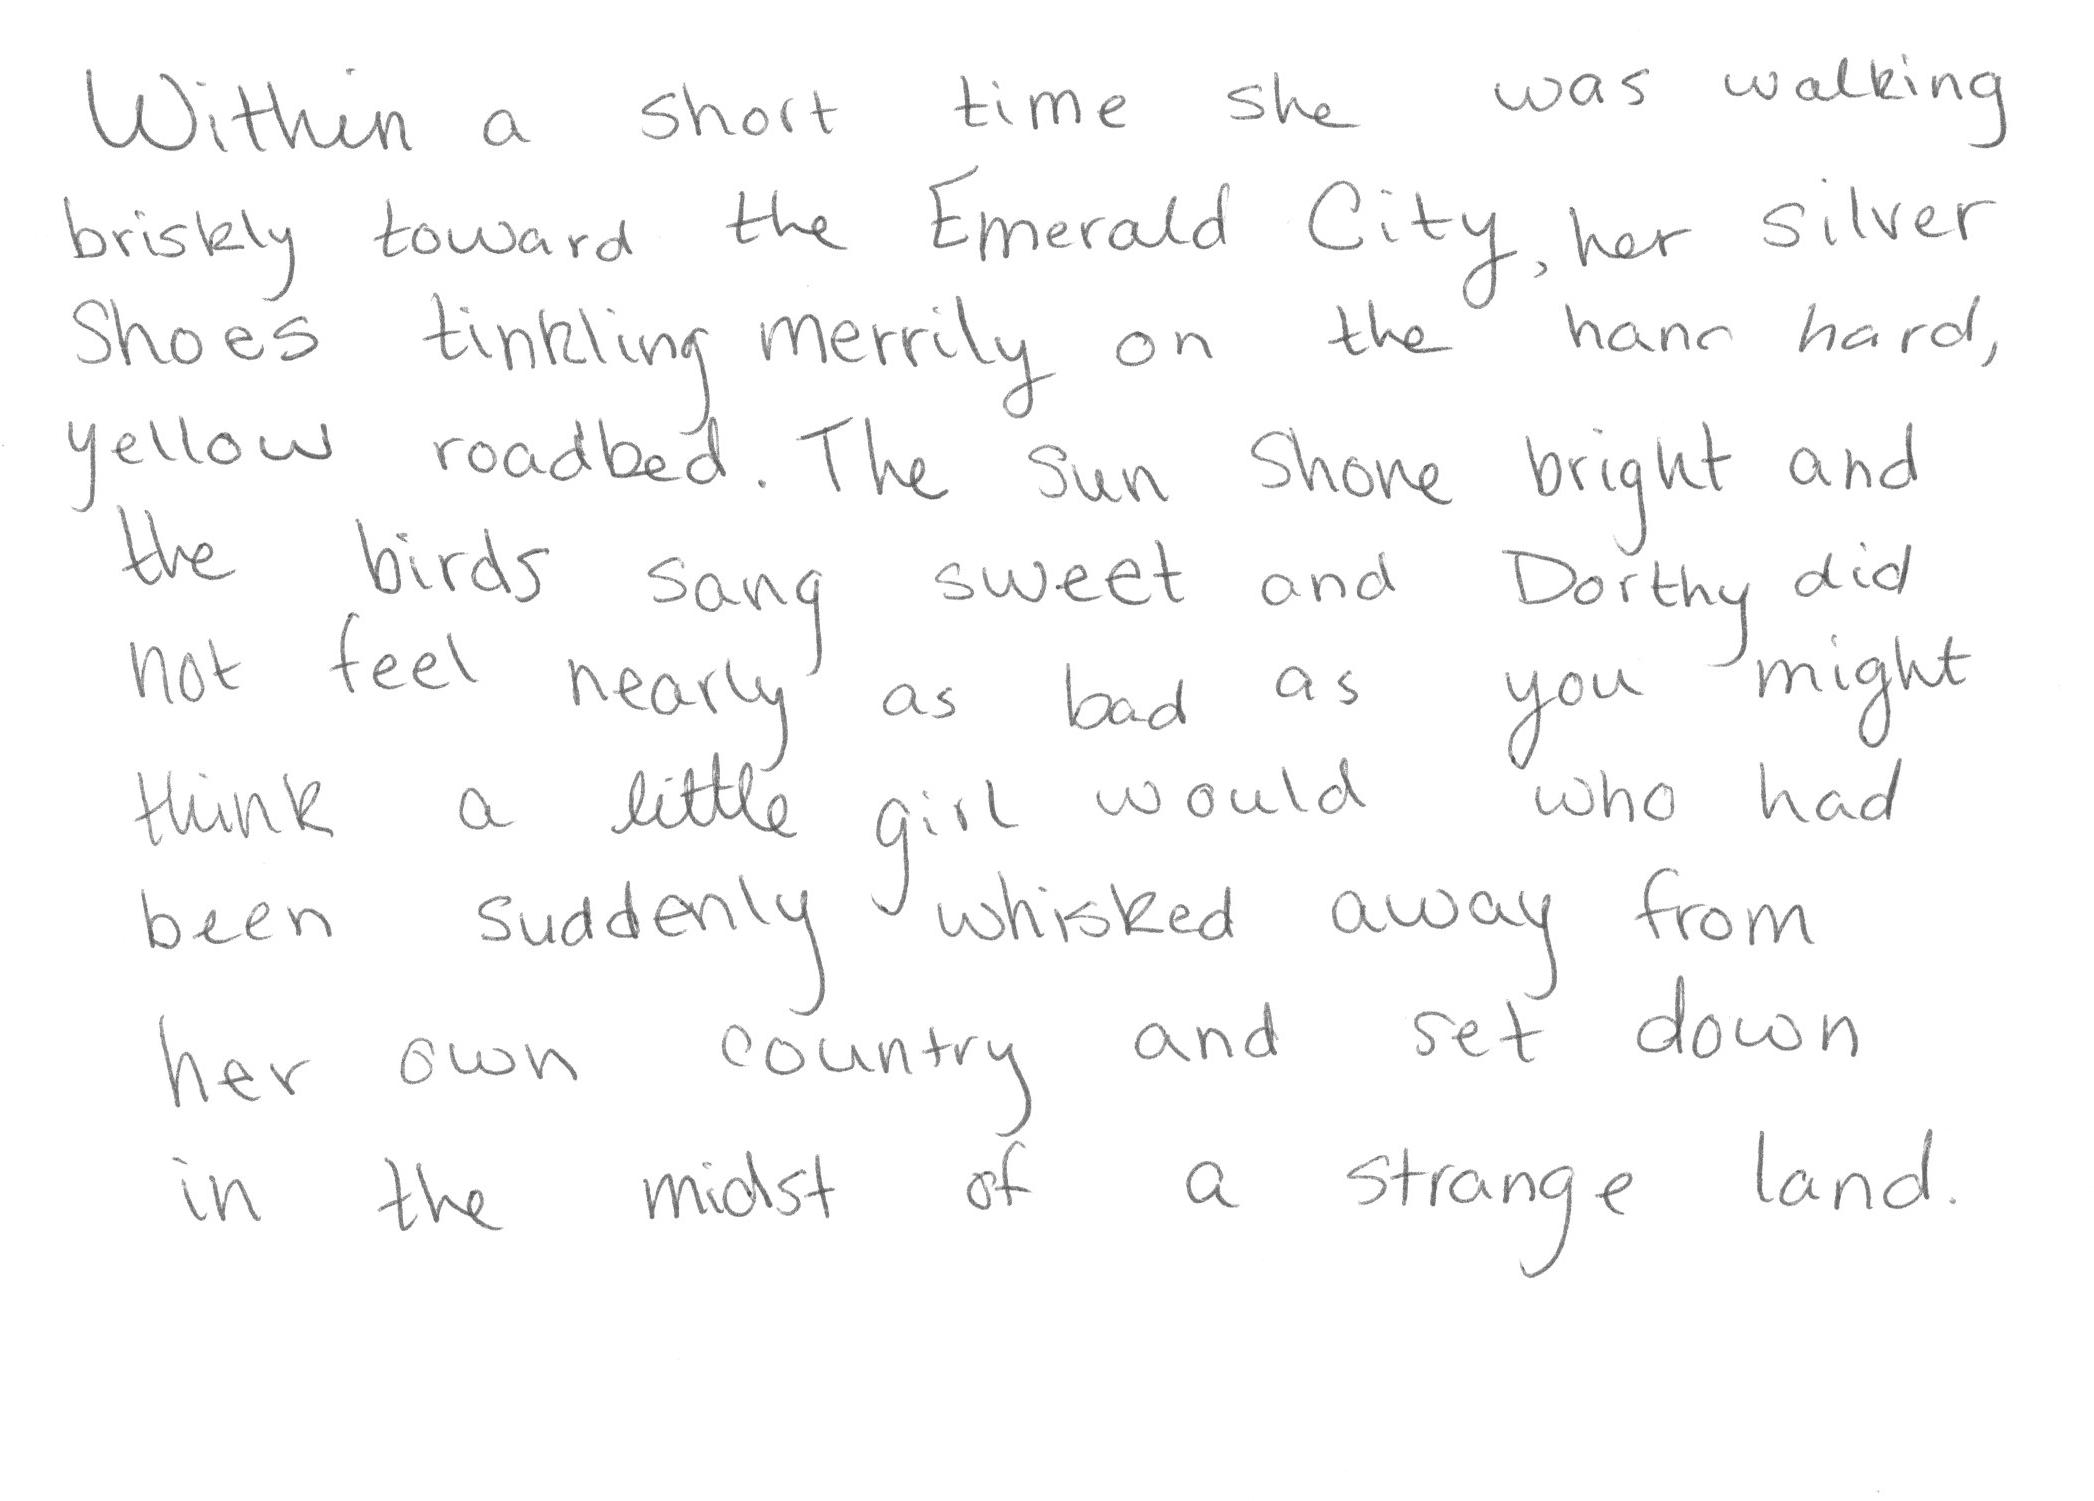 Within a short time she was walking
briskly toward the Emerald City, her silver
Shoes tinkling merrily on the hard,
yellow roadbed. The sun shone bright and
the birds sang sweet and Dorthy did
not feel nearly as bad as you might
think a little girl would who had
been suddenly whisked away from
her own country and set down
in the midst of a strange land.